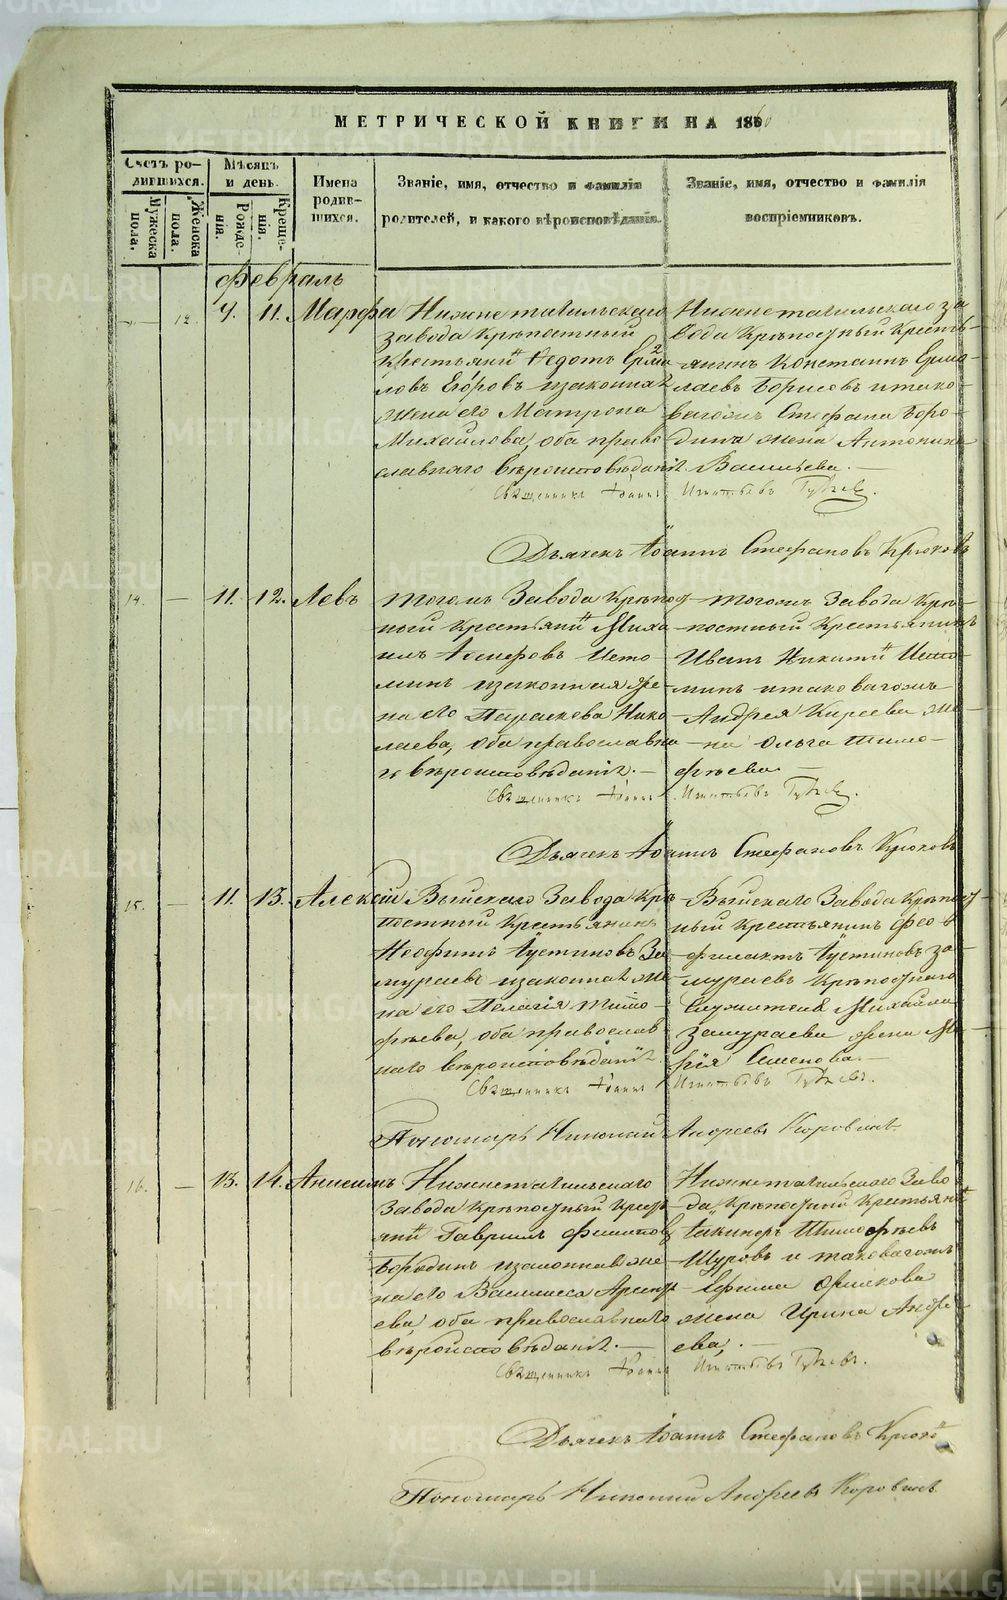 МЕТРИЧЕСКОЙ КНИГИ НА 1860
Счетъ родившихся.
Мужеска пола.
Женска пола.
Мѣсяцъ и день.
Рожденія.
Крещенія.
Имена родившихся.
Званіе, имя, отчество и фамилія родителей, и какого вѣроисповѣданія.
Званіе, имя, отчество и фамилія воспріемниковъ.
Февраль
12. 11. Марфа
Нижнетагильскаго
завода Крѣпостный
Крестьянинъ Федотъ Ермо
ловъ Егоровъ и законная
жена его Матрона
Михайлова, оба право
славнаго вѣроисповѣданія
Нижнетагильскаго за
вода Крѣпостный Кресть
янинъ Константинъ Ермо
лаевъ Борисовъ и тако
вагожъ Стефана Боро
дина жена Антонина
Васильева.
Священникъ Іоаннъ Игнатьевъ
Дьячекъ Іоаннъ Стефановъ Крюковъ
14. — 11. 12. Левъ
Тогожъ Завода Крѣпост
ный Крестьянинъ Миха
илъ Іосифовъ Исто
минъ и законная же
на его Параскева Нико
лаева, оба православна
го вѣроисповѣданія. —
Тогожъ Завода Крѣ
постный Крестьянинъ
Иванъ Никитинъ Исто
минъ и таковагожъ
Андрея Киреева же
на Ольга Тимо
фѣева —
Священникъ Іоаннъ Игнатьевъ
Дьячекъ Іоаннъ Стефановъ Крюковъ
15. — 11. 13. Алексій
Выйскаго Завода Крѣ
постный Крестьянинъ
Неофитъ Іустиновъ За
мураевъ и законная же
на его Пелагія Тимо
фѣева, оба православ
наго вѣроисповѣданія.
Выйскаго Завода Крѣпост
ный Крестьянинъ Фео
филактъ Іустиновъ За
мураевъ Крѣпостнаго
Служителя Михайла
Замураева жена Ма
рія Семенова. —
Священникъ Іоаннъ Игнатьевъ
Пономарь Николай Андреевъ Коровинъ
16. — 13. 14. Анисимъ
Нижнетагильскаго
Завода Крѣпостный Кресть
янинъ Гавріилъ
Бородинъ и законная же
на его Василиса Арсенть
ева, оба православнаго
вѣроисповѣданія. —
Нижнетагильскаго Заво
да Крѣпостный Крестьянинъ
Никаноръ Тимофѣевъ
Щуровъ и таковагожъ
Ефима
жена Ирина Андре
ева. —
Священникъ Іоаннъ Игнатьевъ
Дьячекъ Іоаннъ Стефановъ Крюковъ
Пономарь Николай Андреевъ Коровинъ
METRIKI.GASO-URAL.RU